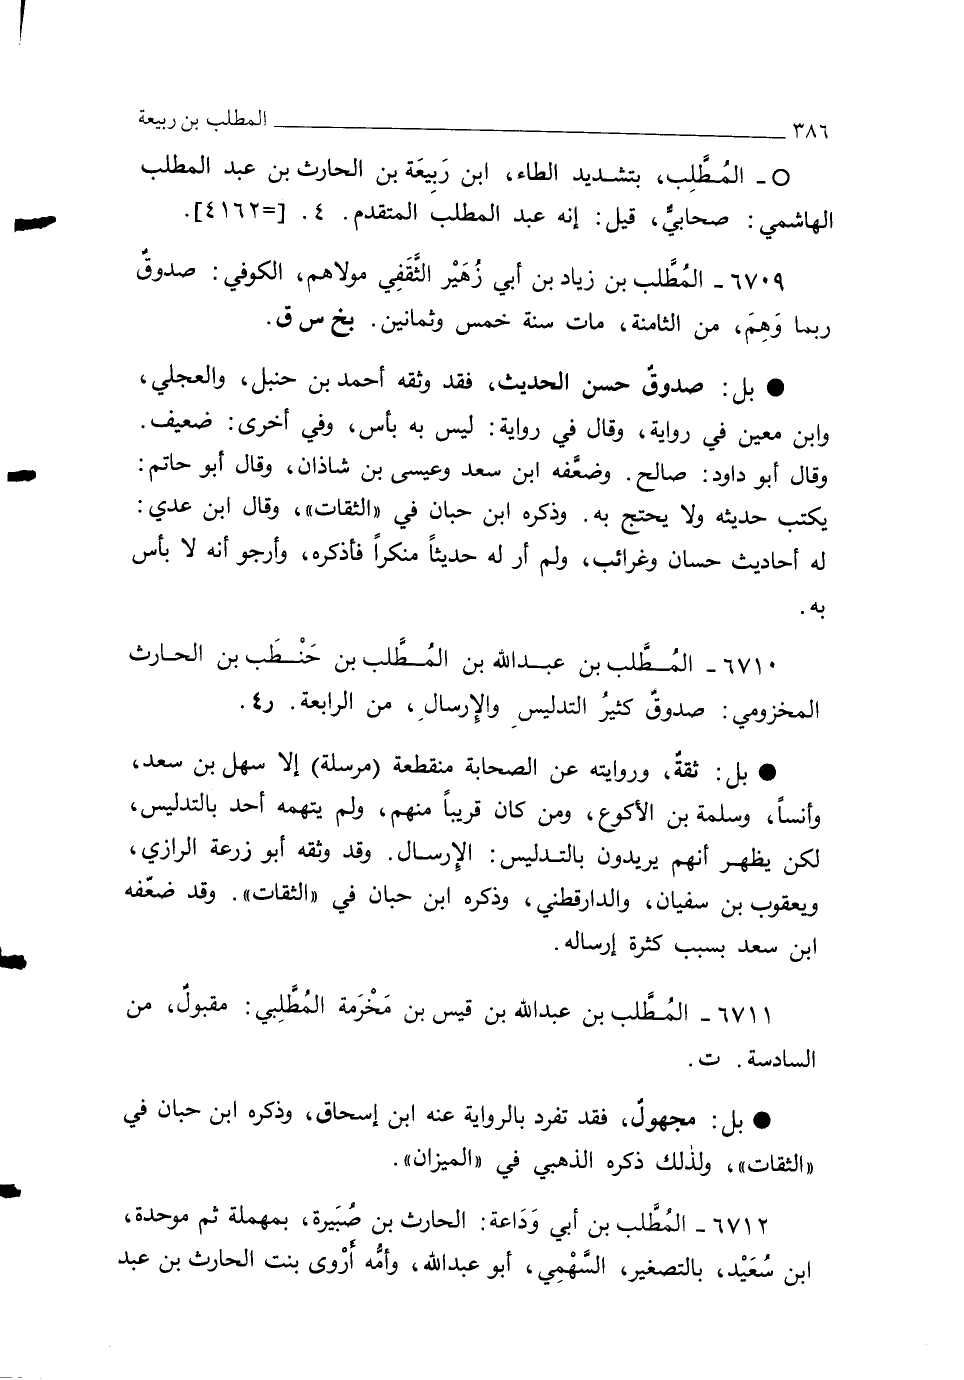 ٣٨٦ المطلب بن ربيعة
O ـ المُطَّلِب، بتشديد الطاء، ابن رَبِيعَة بن الحارث بن عبد المطلب
الهاشمي: صحابيٌّ، قيل: إنه عبد المطلب المتقدم. ٤. [=٤١٦٢].
٦٧٠٩ ـ المُطَّلب بن زياد بن أبي زُهَيْر الثَّقَفِي مولاهم، الكوفي: صدوقٌ
ربما وَهِمَ، من الثامنة، مات سنة خمس وثمانين. بخ س ق.
● بل: صدوقٌ حسن الحديث، فقد وثقه أحمد بن حنبل، والعجلي،
وابن معين في رواية، وقال في رواية: ليس به بأس، وفي أخرى: ضعيف.
وقال أبو داود: صالح. وضعَّفه ابن سعد وعيسى بن شاذان، وقال أبو حاتم:
يكتب حديثه ولا يحتج به. وذكره ابن حبان في «الثقات»، وقال ابن عدي:
له أحاديث حسان وغرائب، ولم أر له حديثاً منكراً فأذكره، وأرجو أنه لا بأس
به.
٦٧١٠ ـ المُطَّلب بن عبدالله بن المُطَّلب بن حَنْطَب بن الحارث
المخزومي: صدوقٌ كثيرُ التدليسِ والإرسالِ، من الرابعة. ر٤.
● بل: ثقةٌ، وروايته عن الصحابة منقطعة (مرسلة) إلا سهل بن سعد،
وأنساً، وسلمة بن الأكوع، ومن كان قريباً منهم، ولم يتهمه أحد بالتدليس،
لكن يظهر أنهم يريدون بالتدليس: الإرسال. وقد وثقه أبو زرعة الرازي،
ويعقوب بن سفيان، والدارقطني، وذكره ابن حبان في «الثقات». وقد ضعّفه
ابن سعد بسبب كثرة إرساله.
٦٧١١ ـ المُطَّلب بن عبدالله بن قيس بن مَخْرَمة المُطَّلِبي: مقبولٌ، من
السادسة. ت.
● بل: مجهولٌ، فقد تفرد بالرواية عنه ابن إسحاق، وذكره ابن حبان في
«الثقات»، ولذلك ذكره الذهبي في «الميزان».
٦٧١٢ ـ المُطَّلب بن أبي وَدَاعة: الحارث بن صُبَيرة، بمهملة ثم موحدة،
ابن سُعَيْد، بالتصغير، السَّهْمِي، أبو عبدالله، وأمُّه أَرْوى بنت الحارث بن عبد